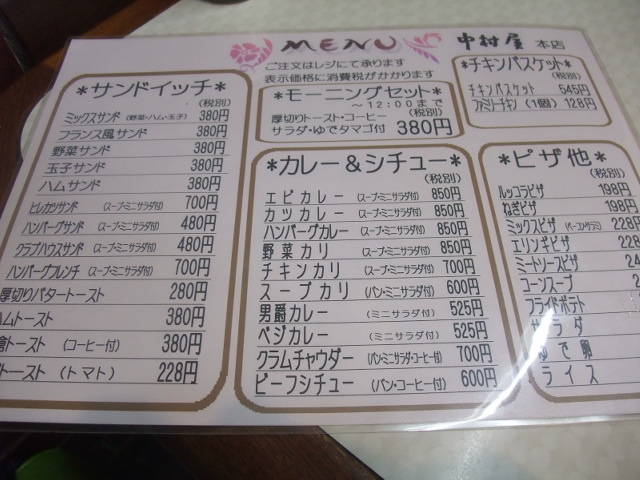 MENU 中村屋 本店
ご注文はレジにて承ります
表示価格に消費税がかかります
*サンドイッチ*
(税別)
ミックスサンド (野菜・ハム・玉子) 380円
フランス風サンド 380円
野菜サンド 380円
玉子サンド 380円
ハムサンド 380円
ヒレカツサンド (スープ・ミニサラダ付) 700円
ハンバーグサンド (スープ・ミニサラダ付) 480円
クラブハウスサンド (スープ・ミニサラダ付) 480円
ハンバーグフレンチ (スープ・ミニサラダ付) 700円
厚切りバタートースト 280円
ハムトースト 380円
トースト (コーヒー付) 380円
トースト (トマト) 228円
*モーニングセット*
~12:00まで
(税別)
厚切りトースト・コーヒー
サラダ・ゆでタマゴ付 380円
*カレー&シチュー*
(税別)
エビカレー (スープ・ミニサラダ付) 850円
カツカレー (スープ・ミニサラダ付) 850円
ハンバーグカレー (スープ・ミニサラダ付) 850円
野菜カリー (スープ・ミニサラダ付) 850円
チキンカリー (スープ・ミニサラダ付) 700円
スープカリー (パン・ミニサラダ付) 600円
男爵カレー (ミニサラダ付) 525円
ベジカレー (ミニサラダ付) 525円
クラムチャウダー (パン・ミニサラダ・コーヒー付) 700円
ビーフシチュー (パン・コーヒー付) 600円
*チキンバスケット*
(税別)
チキンバスケット 545円
ファミリーチキン (1個) 128円
*ピザ他*
(税別)
ルッコラピザ 198円
ねぎピザ 198円
ミックスピザ 228円
エリンギピザ 228
ミートソースピザ
コーンスープ
フライドポテト
サラダ
ゆで卵
ライス